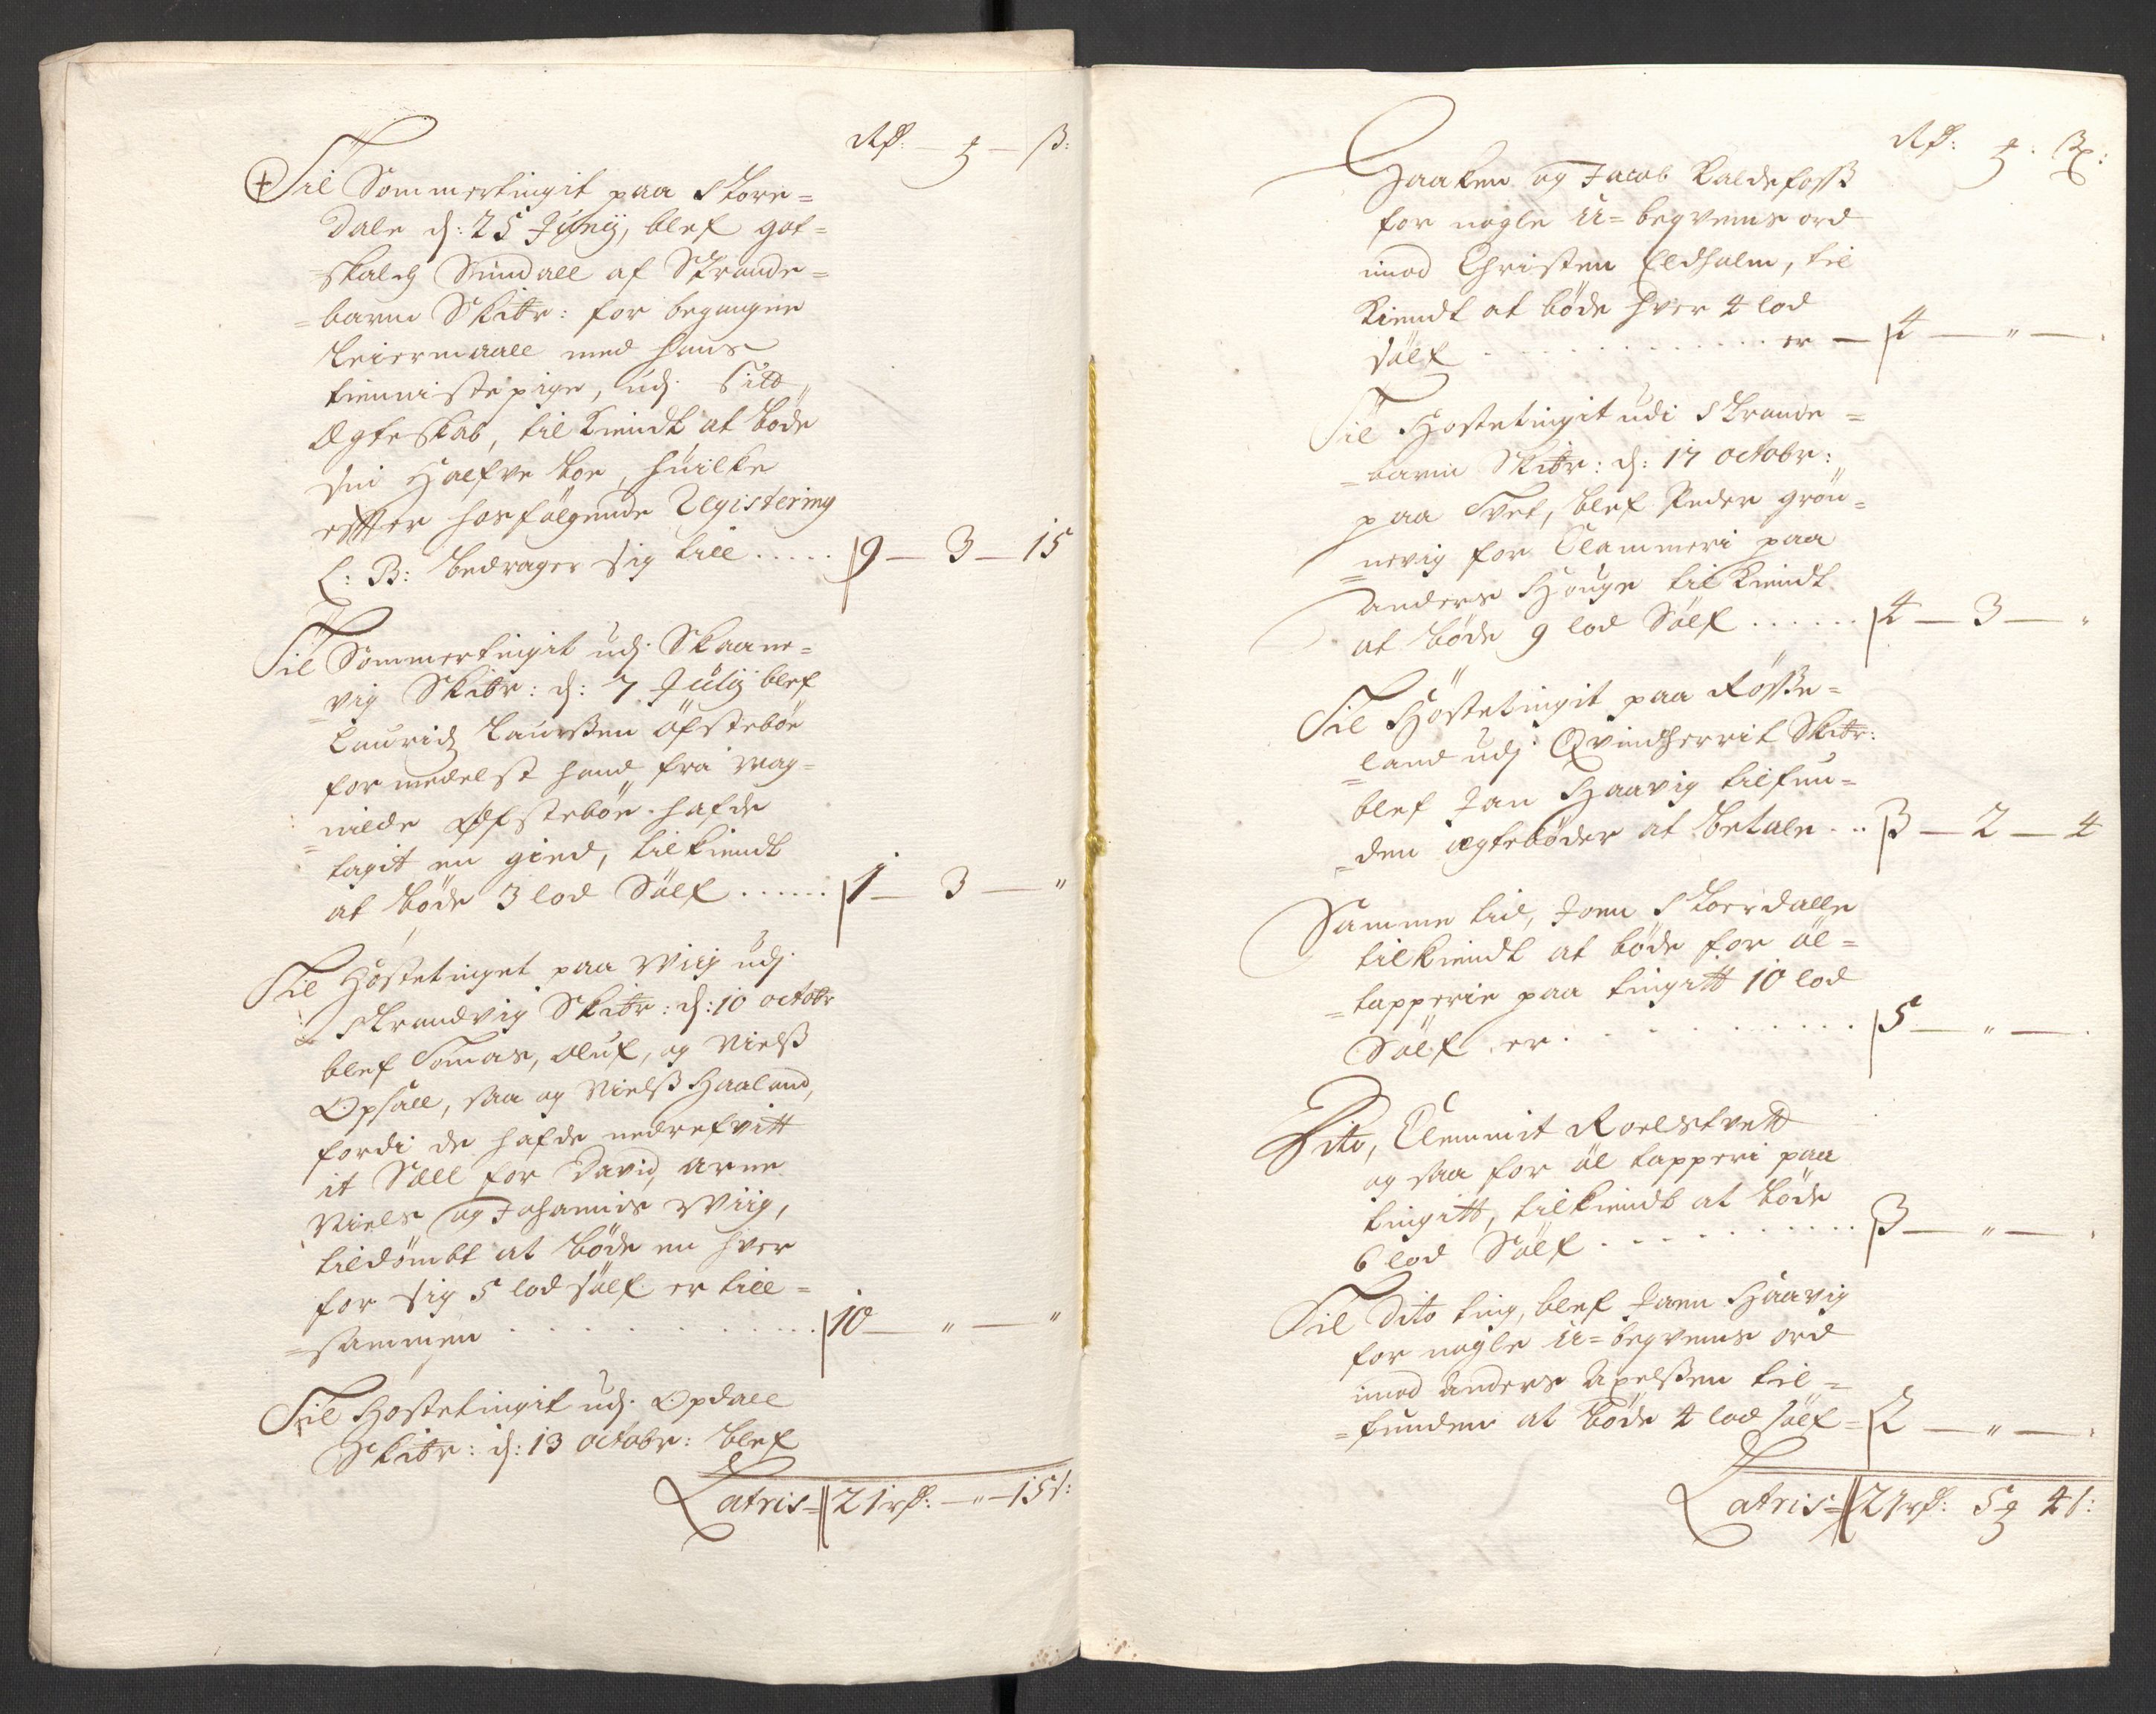 Rdr: — ₰ — ß:
Til Sommertingit paa Store=
Dale d: 25 Junij, blef got=
=skalch Sundall af Strande=
=barm Skibr: for begangne
Leiermaall med hans
tienniste pige, udj sitt
Ægteskab, tilkiendt at bøde
sin Halfve boe, huilke
effter hosfølgende Registering
L: B: bedrager sig till ..... 9 — 3 — 15
Til Sommertingit udj Skaane=
=vig Skibr: d: 7 Julij blef
Lauridz Laurssen Øfstebøe
formedelst hand fra Mag=
=nilde Øfstebøe hafde
tagit en gied, tilkiendt
at bøde 3 lod Sølf ...... 1 — 3 — "
Til Høstetinget paa Wiig udj
Strandvig Skibr: d: 10 octobr
blef Tomas, Oluf, og Nielß
Opsall, saa og Nielß Haaland,
fordi de hafde nedrefvitt
it Sell for David, Arne
Niels og Johannis Wiig,
tildømbt at bøde en hver
for sig 5 lod sølf er till=
=sammen ............ 10 — " — "
Til Høstetingit udj Opdall
Skibr: d: 13 octobr: blef
Latris= 21 rdr: — " — 15 s:
Rdr: ₰: ß:
Haaken og Jacob Kaldefoss
for nogle U=beqvems ord
imod Christen Eldholm, til
kiendt at bøde hver 4 lod
sølf ............ er — 4 — " — .
Til Høstetingit udi Strande=
=barm Skibr: d: 17 octobr:
paa Tvet, blef Peder grøn=
=nevig for Clammeri paa
Anders Houge tilkiendt
at bøde 9 lod Sølf ...... 4 — 3 — "
Til Høstetingit paa Røsse=
=land udj Qvindherrit Skibr:
blef Jan Haavig tilfun=
=den egtebøder at betale .. 3 — 2 — 4
Samme tid, Joen Skoerdalle
tilkiendt at bøde for øl=
=tapperie paa tingitt 10 lod
Sølf er ............ 5 — " — .
Dito, Clemmit Roelstvett
og saa for øl tapperi paa
tingitt, tilkiendt at bøde
6 lod Sølf ............ 3 — " — .
Til Dito ting, blef Joen Haavig
for nogle U=beqvems ord
imod Anders Axelssen til=
=funden at bøde 4 lod sølf = 2 — " — .
Latris= 21 rdr: 5 ₰ 4 s: